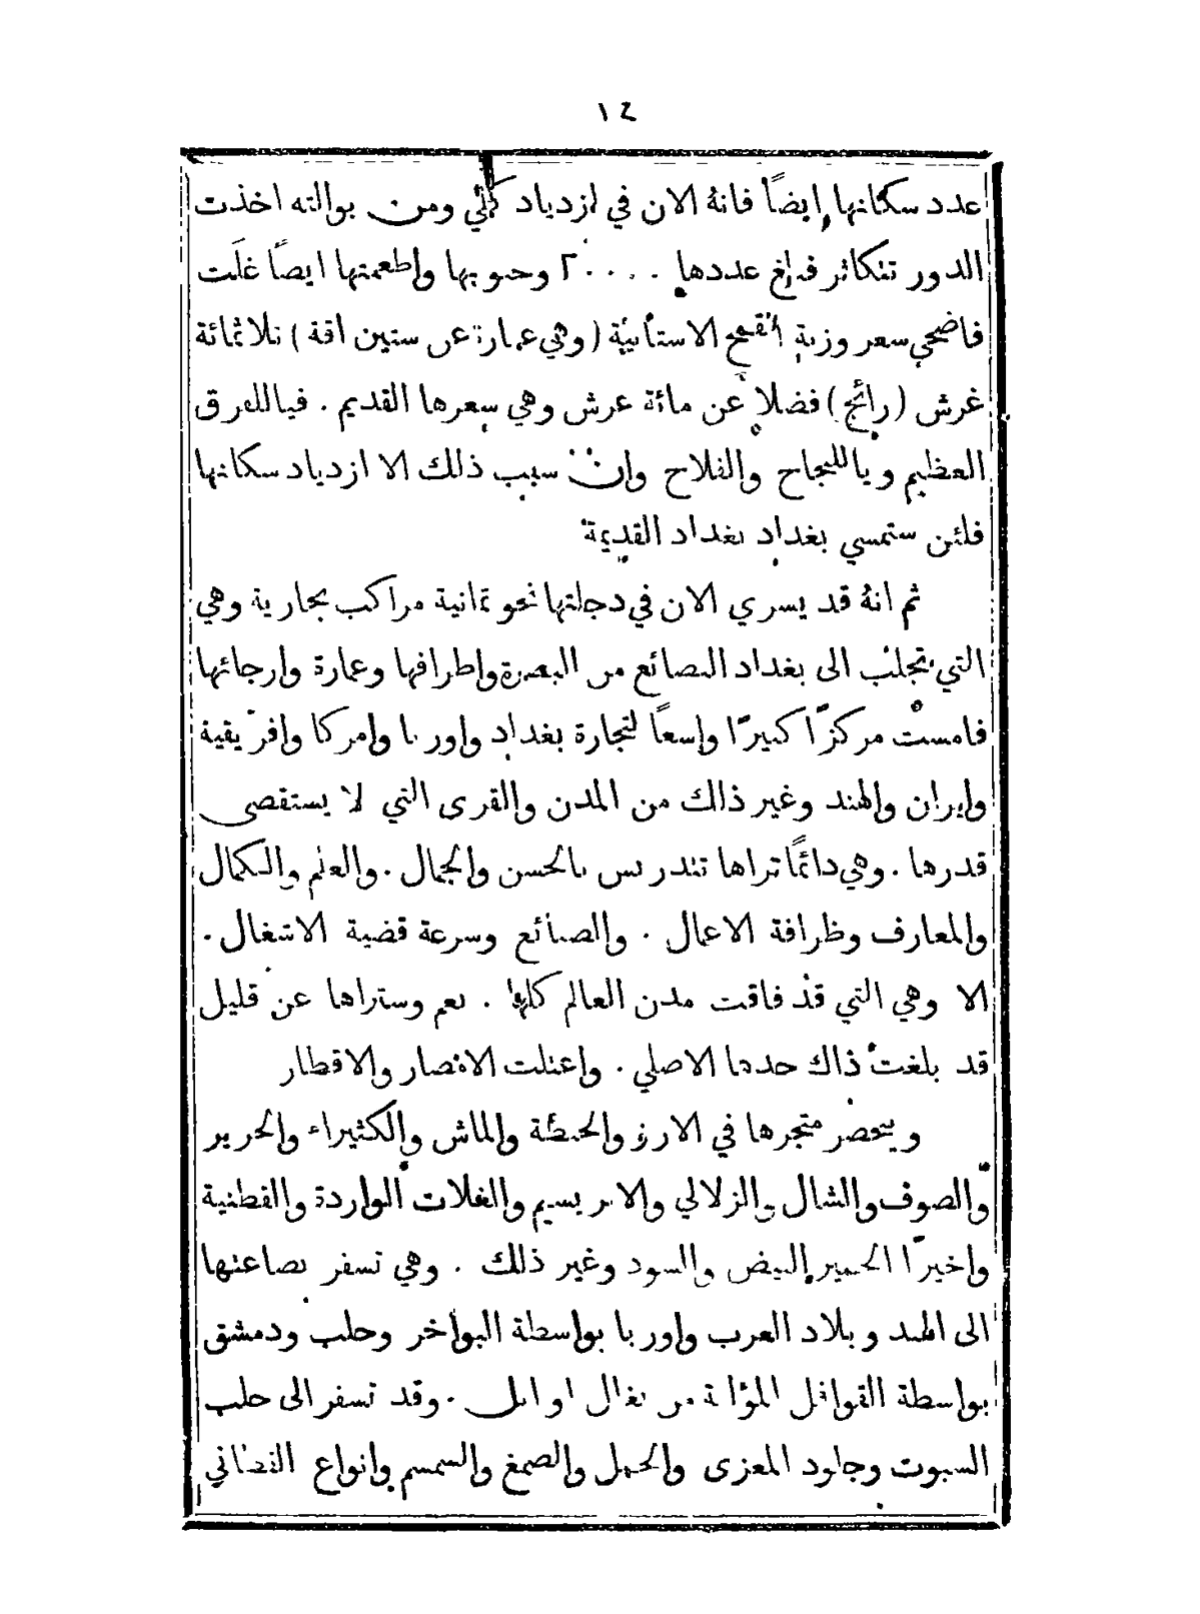 ١٤
عدد سكانها ايضًا فانهُ الان في ازدياد كلي ومن بوالته اخذت
الدور تتكاثر فبلغ عددها ٢٠٠٠٠ وحبوبها واطعمتها ايضًا غلَت
فاضحى سعر وزنة القمح الاستانية (وهي عبارة عن ستين اقة) ثلاثمائة
غرش (رائج) فضلاً عن مائة غرش وهي سعرها القديم . فياللفرق
العظيم ويا للنجاح والفلاح وان سبب ذلك الا ازدياد سكانها
فلئن ستمسي بغداد بغداد القديمة
ثم انهُ قد يسري الان في دجلتها نحو ثمانية مراكب بخارية وهي
التي تجلب الى بغداد البضائع من البصرة واطرافها وعمارة وارجائها
فامست مركزًا كبيرًا واسعًا لتجارة بغداد واوربا وامركا وافريقية
وايران والهند وغير ذالك من المدن والقرى التي لا يستقصى
قدرها . وهي دائمًا تراها تتدربس بالحسن والجمال . والعلم والكمال
والمعارف وظرافة الاعمال . والصنائع وسرعة قضية الاشغال .
الا وهي التي قد فاقت مدن العالم كلها . نعم وستراها عن قليل
قد بلغت ذاك حدها الاصلي . واعتلت الامصار والاقطار
وينحصر متجرها في الارز والحنطة والماش والكثيراء والحرير
والصوف والشال والزلالي والابريسيم والغلات الواردة والقطنية
واخيرًا الحمير البيض والسود وغير ذلك . وهي تسفر بضاعتها
الى الهند وبلاد العرب واوربا بواسطة البواخر وحلب ودمشق
بواسطة القوافل المؤلفة من بغال او ابل . وقد تسفر الى حلب
السبوت وجلود المعزى والحمل والصمغ والسمسم وانواع القطاني